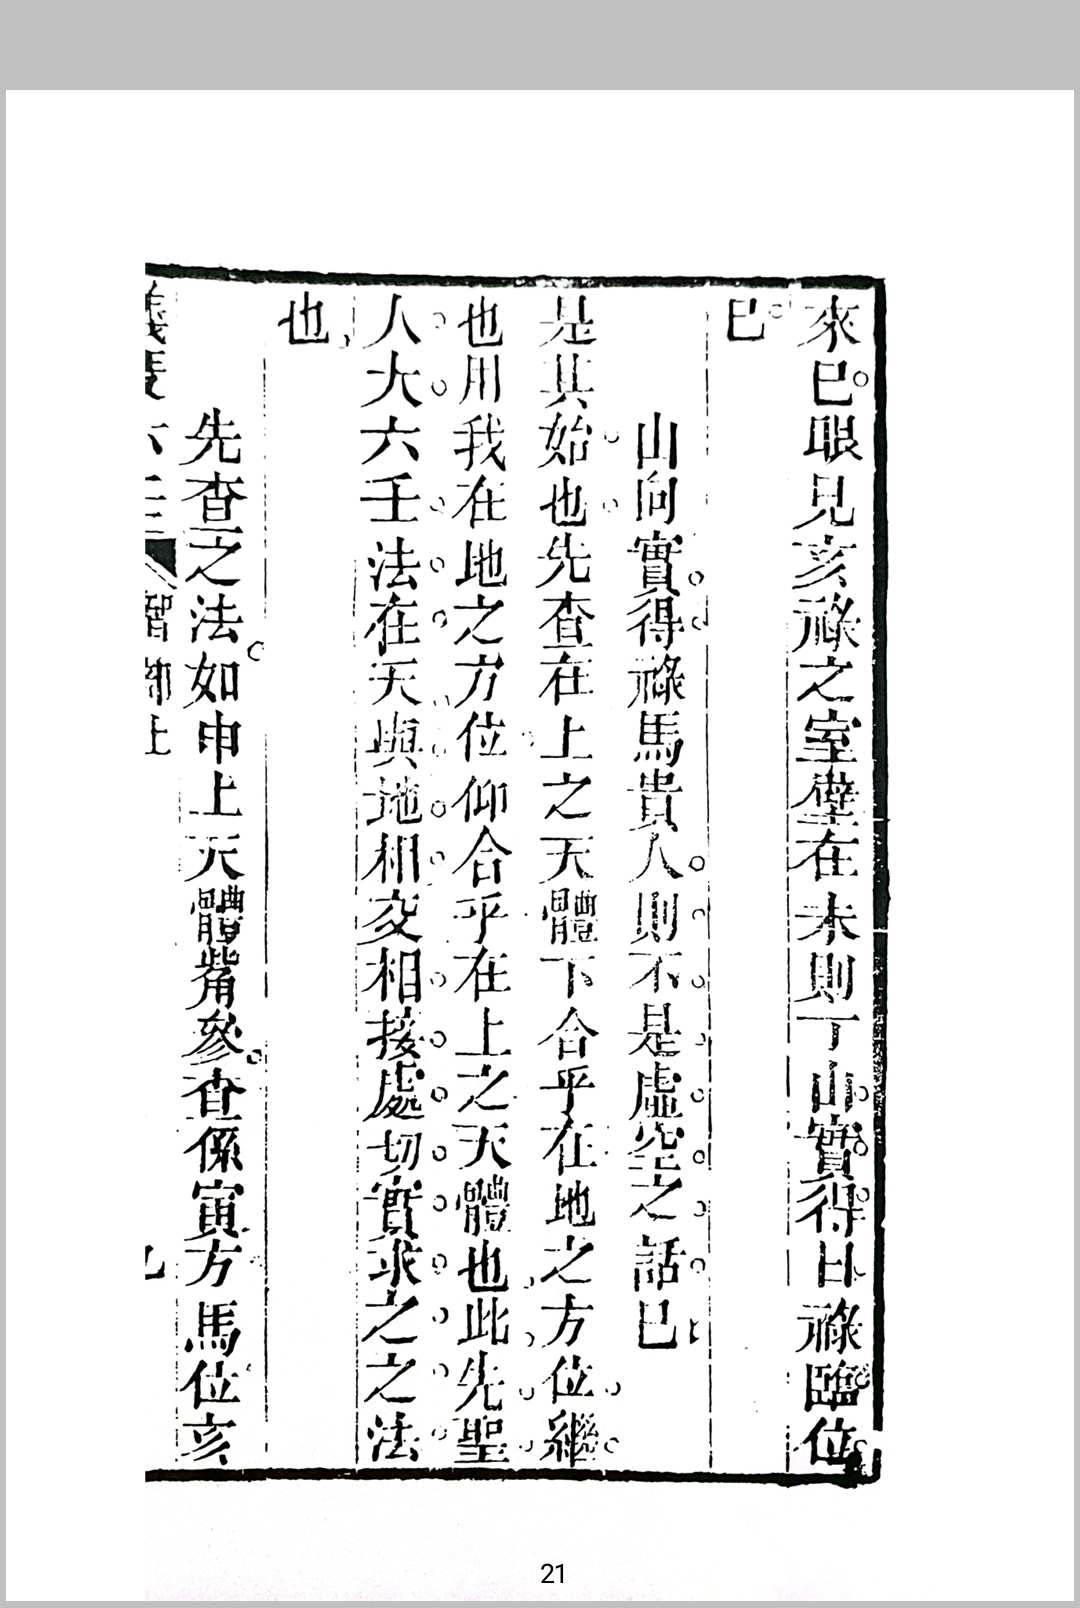 來巳眼見亥祿之室壁在未則丁山實得日祿臨位
巳
山向實得祿馬貴人則不是虛空之話巳
是其始也先查在上之天體下合乎在地之方位繼
也用我在地之方位仰合乎在上之天體也此先聖
人大六壬法在天與地相交相接處切實求之之法
也
先查之法如申上天體觜參查係寅方馬位亥
21